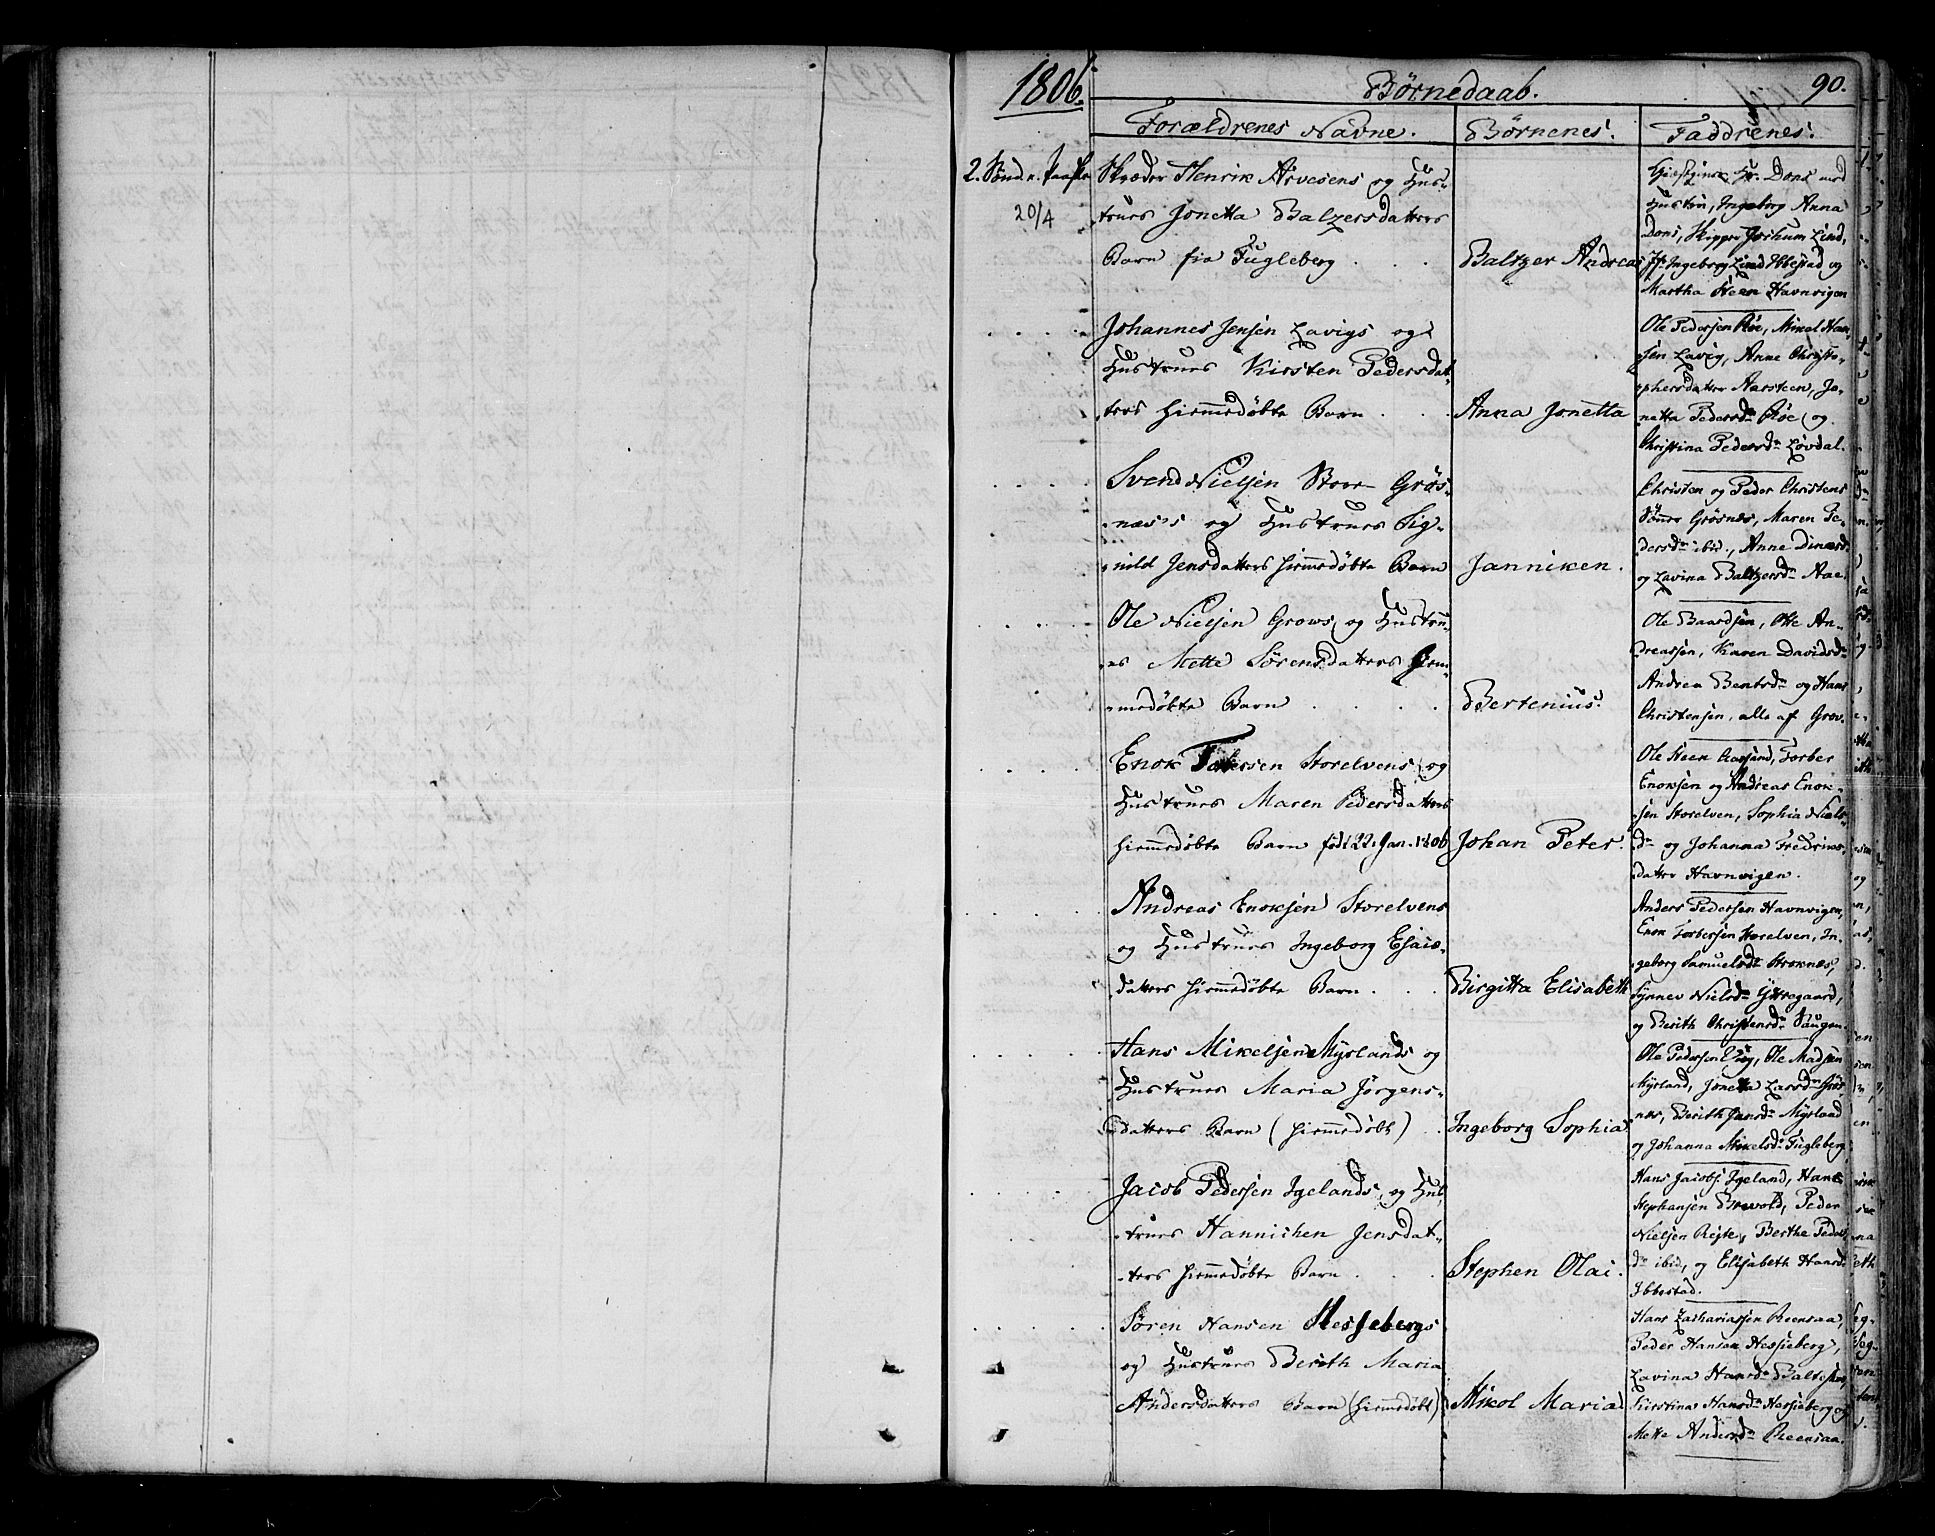 1806.
Børnedaab.
90.
Forældrenes Navne.
Børnenes.
Faddrenes.
2. Sønd. n. Paaske
20/4
Skræder Henrik Arvesens og Hus-
trues Jonetta Balzersdatters
Barn fra Fugleberg . . .
Baltzer Andreas
Hr. Dons med
Hustru, Ingeborg Anna
Dons, Skipper Jochum Lind,
Ingeborg Lind Ibbestad og
Martha Steen Havnvigen
Johannes Jensen Lavigs og
Hustrues Kirsten Pedersdat-
ters hiemmedøbte Barn . . .
Anna Jonetta
Ole Pedersen Røe, Mikel Han-
sen Lavig, Anne Christo-
phersdatter Aarsteen, Jo-
netta Pedersdr. Røe og
Christina Pedersdr. Løvdal.
Svend Nielsen Store Grøs-
næs's og Hustrues Sig-
nild Jensdatters hiemmedøbte Barn
Janniken.
Christen og Peder Christens
Sønner Grøsnæs, Maren Pe-
dersdr. ibid., Anne Dinesd.
og Lavina Baltzersdr. Aae.
Ole Nielsen Grows og Hustru-
es Mette Sørensdatters hiem-
medøbte Barn . . . .
Bertenius.
Ole Baardsen, Otte An-
dreassen, Karen Davidsdr.
Andrea Bentsdr. og Hans
Christensen, alle af Grov.
Enok Torbersen Storelvens og
Hustrues Maren Pedersdatters
hiemmedøbte Barn født 22. Jan. 1806
Johan Peter.
Ole Steen Aarsand, Torber
Enoksen og Andreas Enok-
sen Storelven, Sophia Niels-
dr. og Johanna Fredrics-
datter Havnvigen.
Andreas Enoksen Storelvens
og Hustrues Ingeborg Esaie-
datters hiemmedøbte Barn . . .
Birgitta Elisabeth
Anders Pedersen Havnvigen,
Enok Torbersen Storelven, In-
geborg Samuelsdr. Stroknæs,
Synnev Nielsdr. Yttregaard,
og Berith Christensdr. Saugen.
Hans Mikelsen Myrlands og
Hustrues Maria Jørgens-
datters Barn (hiemmedøbt) .
Ingeborg Sophia
Ole Pedersen Vig, Ole Madsen
Myrland, Jonetta Larsdr. Grøs-
næs, Berith Jansdr. Myrland
og Johanna Mikelsdr. Fugleberg
Jacob Pedersen Igelands, og Hus-
trues Hannichen Jensdat-
ters hiemmedøbte Barn . . .
Stephen Olai.
Hans Jacobs. Igeland, Hans
Stephansen Brevold, Peder
Nielsen Rejte, Berthe Peders
dr. ibid, og Elisabeth Hansd.
Ibbestad.
Søren Hansen Hessebergs
og Hustrues Berith Maria
Andersdatters Barn (hiemmedøbt)
Mikol Maria
Hans Zachariassen Reensaa,
Peder Hansen Hessieberg,
Lavina Hansdr.
Kirstina Hansdr. Hessieberg og
Mette Andersdr. Reensaa.